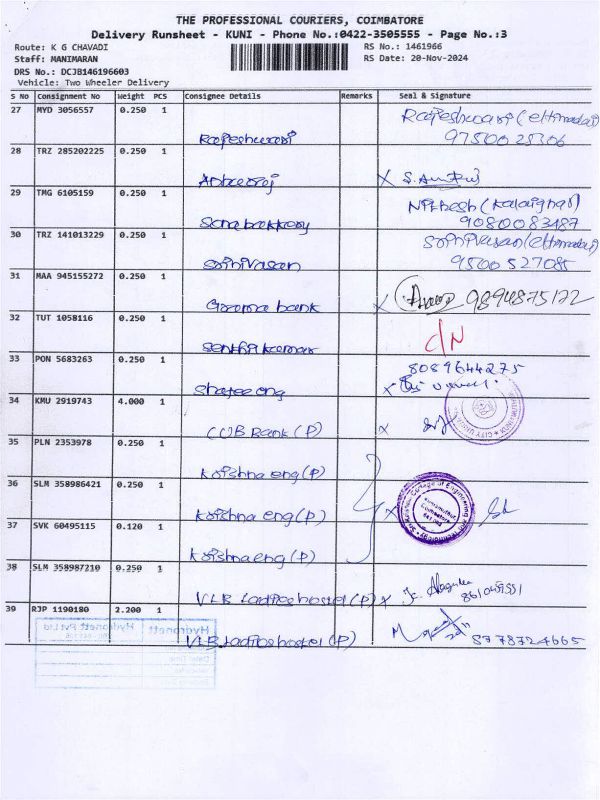 THE PROFESSIONAL COURIERS, COIMBATORE
Delivery Runsheet - KUNI - Phone No.:0422-3505555 - Page No.:3
Route: K G CHAVADI
RS No.: 1461966
Staff: MANIMARAN
RS Date: 20-Nov-2024
DRS No.: DCJB146196603
Vehicle: Two Wheeler Delivery
S No Consignment No Weight PCS Consignee Details Remarks Seal & Signature
27 MYD 3056557 0.250 1 Rajeshwari
9750025306
28 TRZ 285202225 0.250 1
29 TMG 6105159 0.250 1
9080083487
30 TRZ 141013229 0.250 1 Srinivasan Srinivasan
9500527085
31 MAA 945155272 0.250 1 bank 9894875172
32 TUT 1058116 0.250 1 Senthil kumar C/N
33 PON 5683263 0.250 1 eng
8089644275
34 KMU 2919743 4.000 1 CUB Bank (P)
35 PLN 2353978 0.250 1 Krishna eng (P)
36 SLM 358986421 0.250 1 Krishna eng (P)
37 SVK 60495115 0.120 1 Krishna eng (P)
38 SLM 358987210 0.250 1 VLB Ladies hostel (P)
39 RJP 1190180 2.200 1 VLB Ladies hostel (P) 8778724665
Hydronett Pvt Ltd